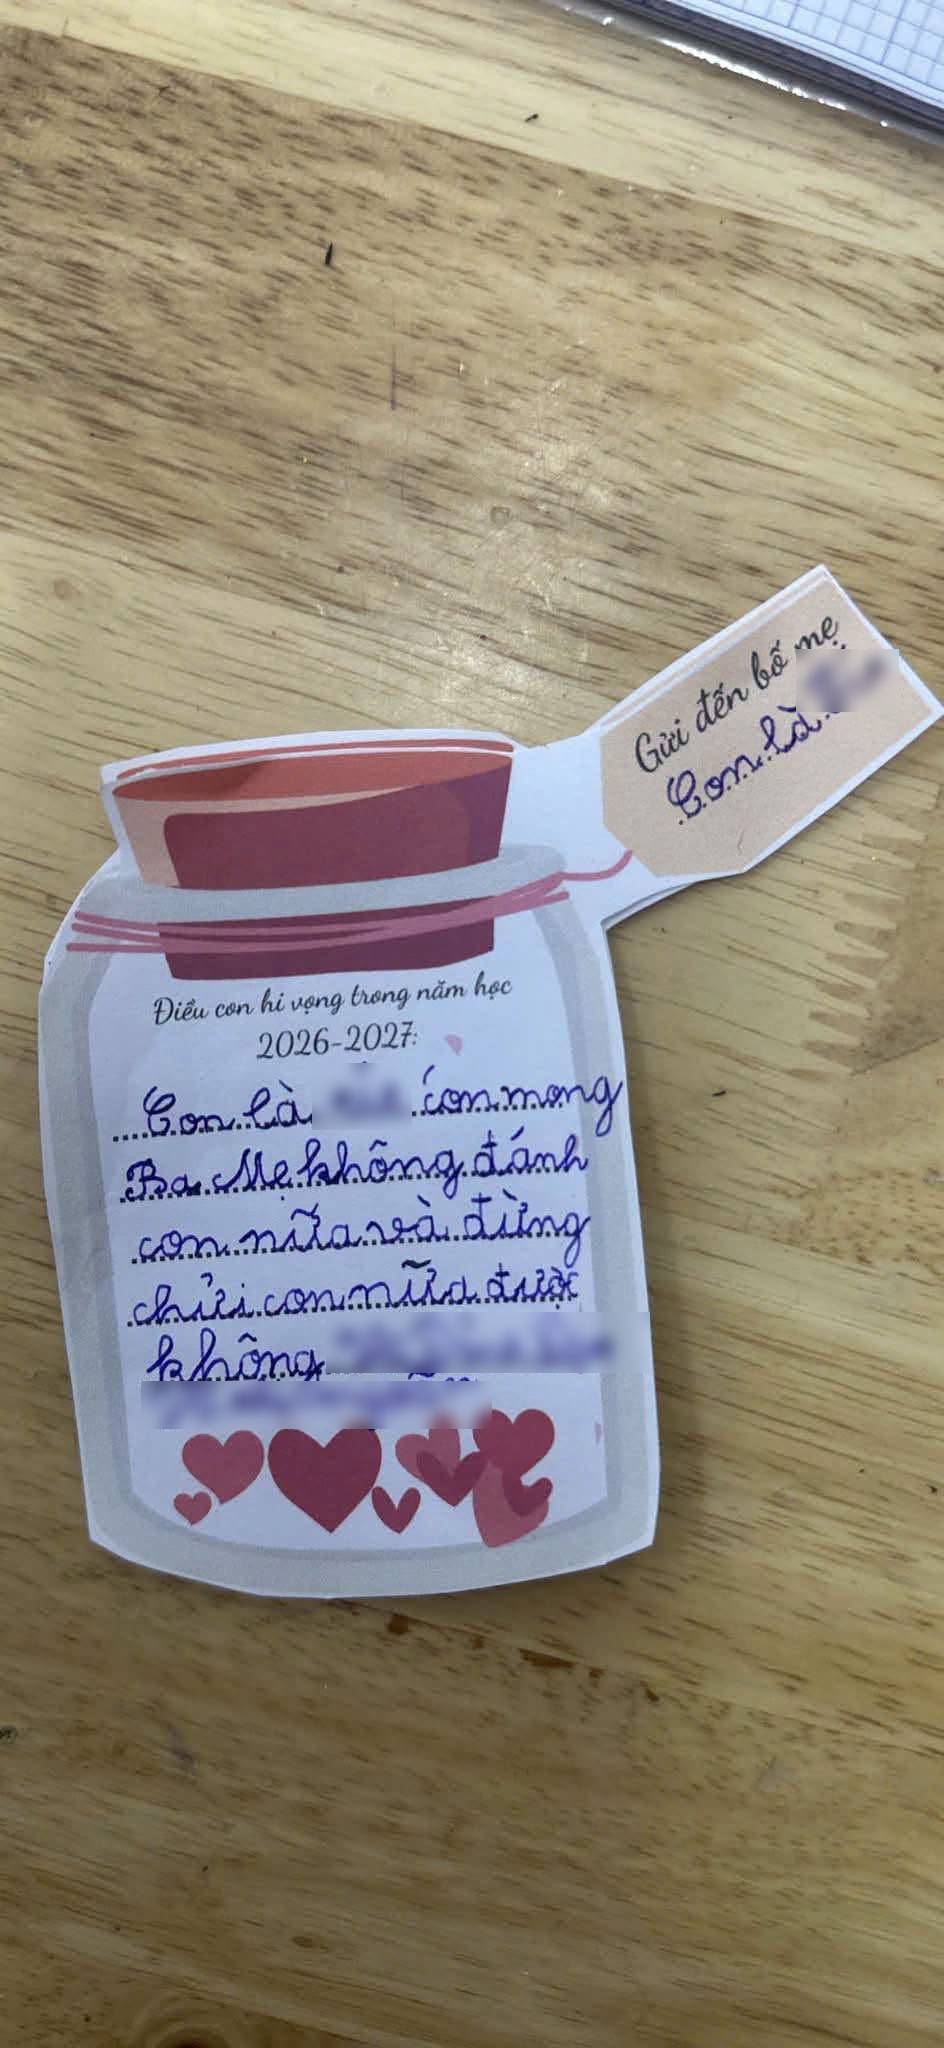 Gửi đến bố mẹ
Con là
Điều con hi vọng trong năm học
2026-2027:
Con là con mong
Ba Mẹ không đánh
con nữa và đừng
chửi con nữa được
không